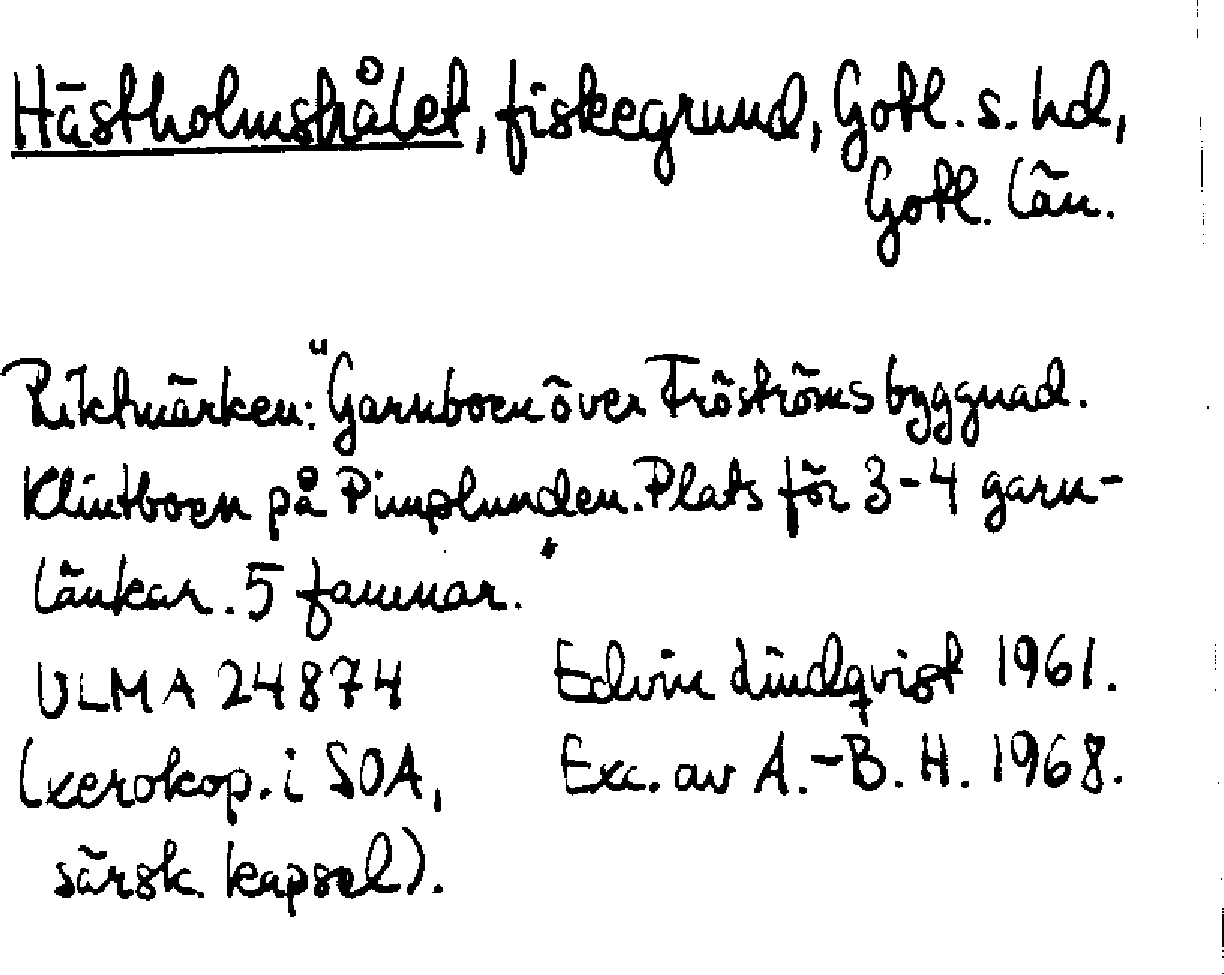 Hästholmshålet, fiskegrund, Gotl. s. hd,
Gotl. län.
Riktmärken: "Garnboen över Fröströms byggnad.
Klintboen på Pimplunden. Plats för 3-4 garn-
länkar. 5 famnar."
ULMA 24874 Edvin Lindqvist 1961.
(xerokop. i SOA, Exc. av A.-B. H. 1968.
särsk. kapsel).